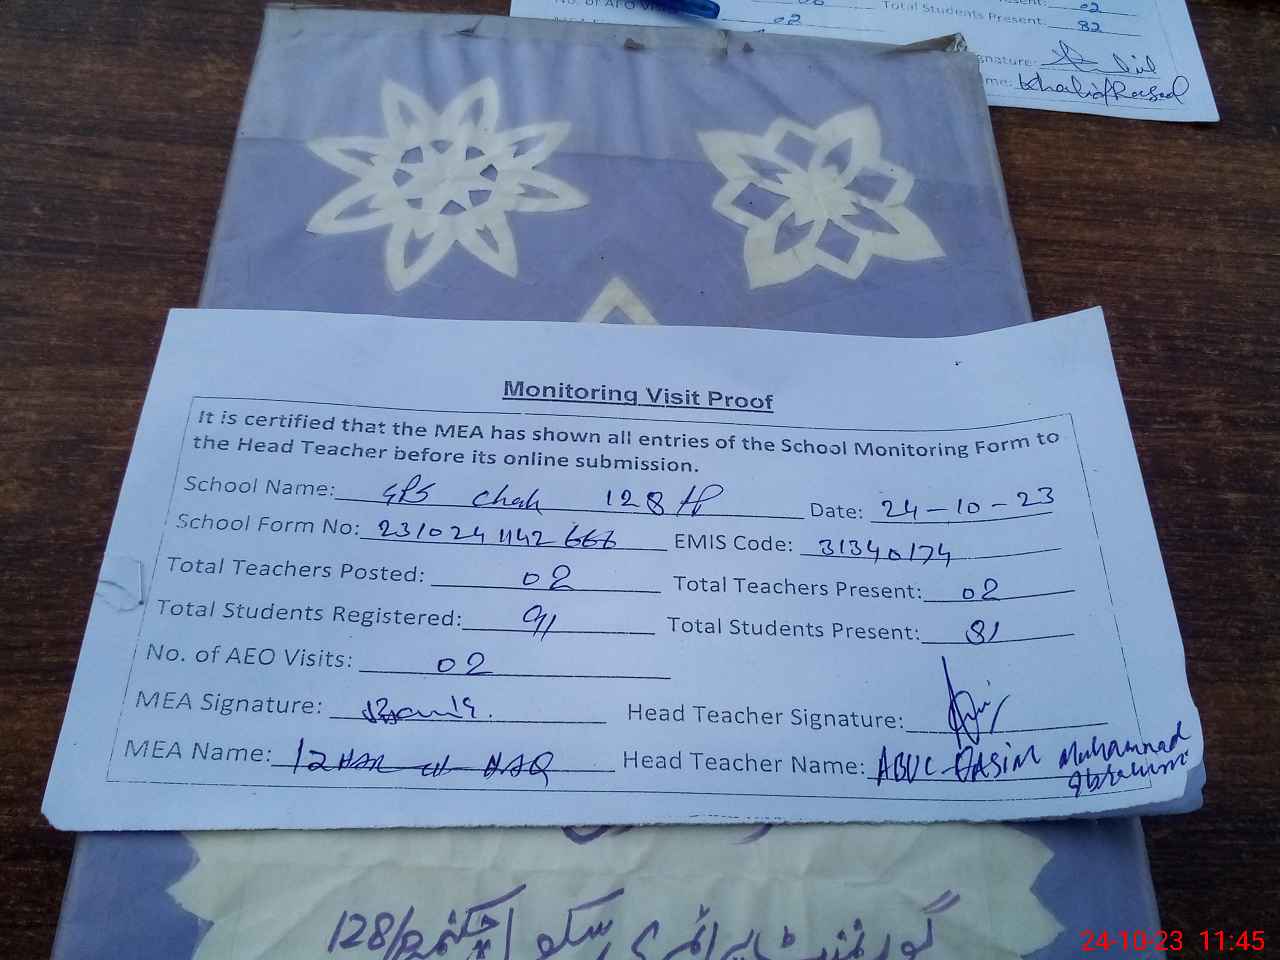 No. of AEO Visits
02
Total Students Present: 82
Khalid Rasheed
Monitoring Visit Proof
It is certified that the MEA has shown all entries of the School Monitoring Form to
the Head Teacher before its online submission.
School Name: GPS Chak 128 P Date: 24-10-23
School Form No: 231024 1142 666 EMIS Code: 31340174
Total Teachers Posted: 02 Total Teachers Present: 02
Total Students Registered: 91 Total Students Present: 81
No. of AEO Visits: 02
MEA Signature: Head Teacher Signature:
MEA Name: IZHAR UL HAQ Head Teacher Name: ABUL QASIM Muhammad
Ibraheem
گورنمنٹ پرائمری سکول چک نمبر 128/P
24-10-23 11:45